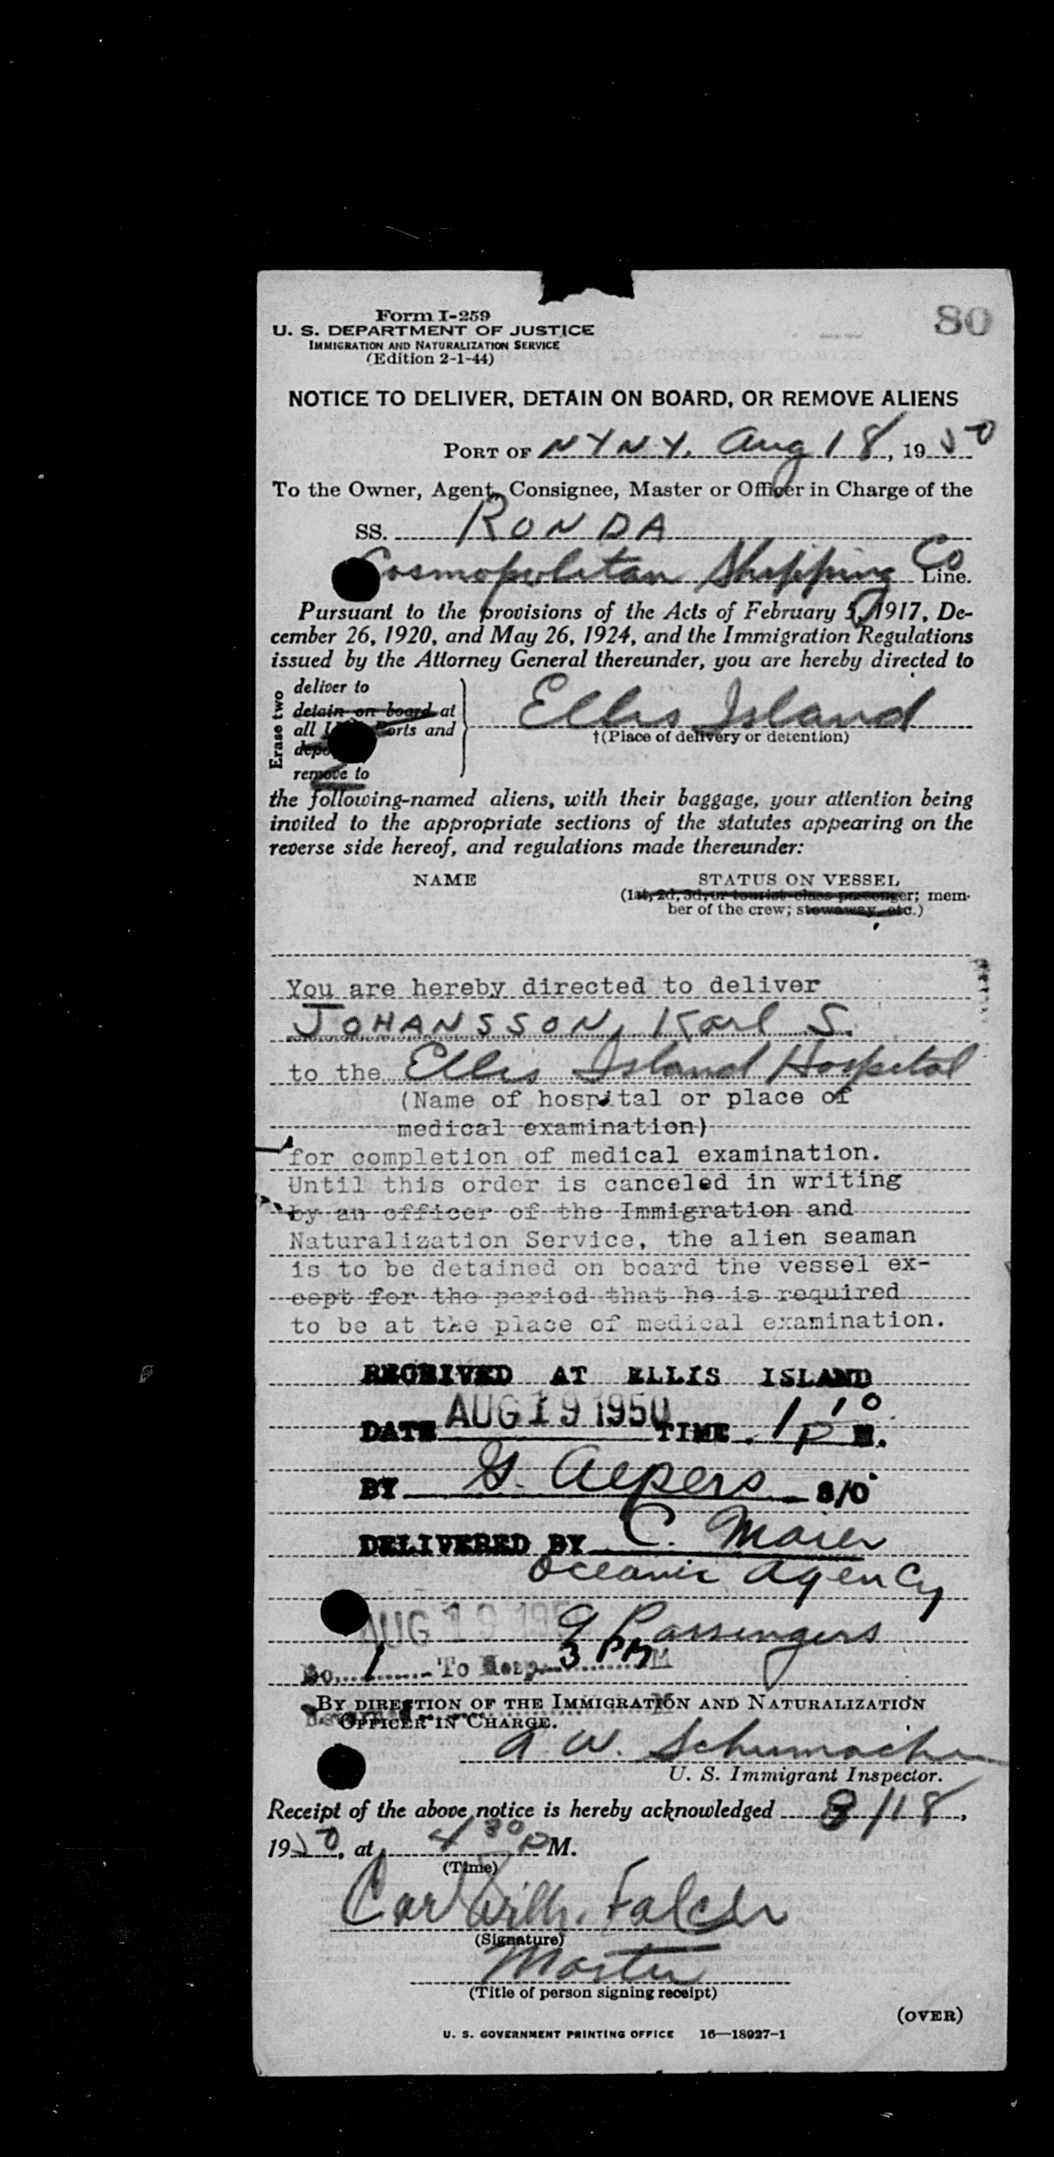 Form I-259
80
U. S. DEPARTMENT OF JUSTICE
IMMIGRATION AND NATURALIZATION SERVICE
(Edition 2-1-44)
NOTICE TO DELIVER, DETAIN ON BOARD, OR REMOVE ALIENS
PORT OF NYNY. Aug 18, 1950
To the Owner, Agent, Consignee, Master or Officer in Charge of the
SS. RONDA
Cosmopolitan Shipping Co Line.
Pursuant to the provisions of the Acts of February 5, 1917, De-
cember 26, 1920, and May 26, 1924, and the Immigration Regulations
issued by the Attorney General thereunder, you are hereby directed to
Erase two
deliver to
detain on board at
all Ports and
remove to
Ellis Island
†(Place of delivery or detention)
the following-named aliens, with their baggage, your attention being
invited to the appropriate sections of the statutes appearing on the
reverse side hereof, and regulations made thereunder:
NAME STATUS ON VESSEL
(1st, 2d, 3d, or tourist-class passenger; mem-
ber of the crew; stowaway, etc.)
You are hereby directed to deliver
JOHANSSON, Karl S.
to the Ellis Island Hospital
(Name of hospital or place of
medical examination)
for completion of medical examination.
Until this order is canceled in writing
by an officer of the Immigration and
Naturalization Service, the alien seaman
is to be detained on board the vessel ex-
cept for the period that he is required
to be at the place of medical examination.
RECEIVED AT ELLIS ISLAND
DATE AUG 19 1950 TIME 1 10 P M.
BY G. Alpers S/O
DELIVERED BY C. Maier
Oceanic Agency
AUG 19 1950 9 Passengers
No. 1 To Hosp. 3 PM M
BY DIRECTION OF THE IMMIGRATION AND NATURALIZATION
OFFICER IN CHARGE.
A. W. Schumacher
U. S. Immigrant Inspector.
Receipt of the above notice is hereby acknowledged 8/18,
1950, at 4 30 P M.
(Time)
Carl Wilh. Falck
(Signature)
Master
(Title of person signing receipt)
(OVER)
U. S. GOVERNMENT PRINTING OFFICE 16—18927-1